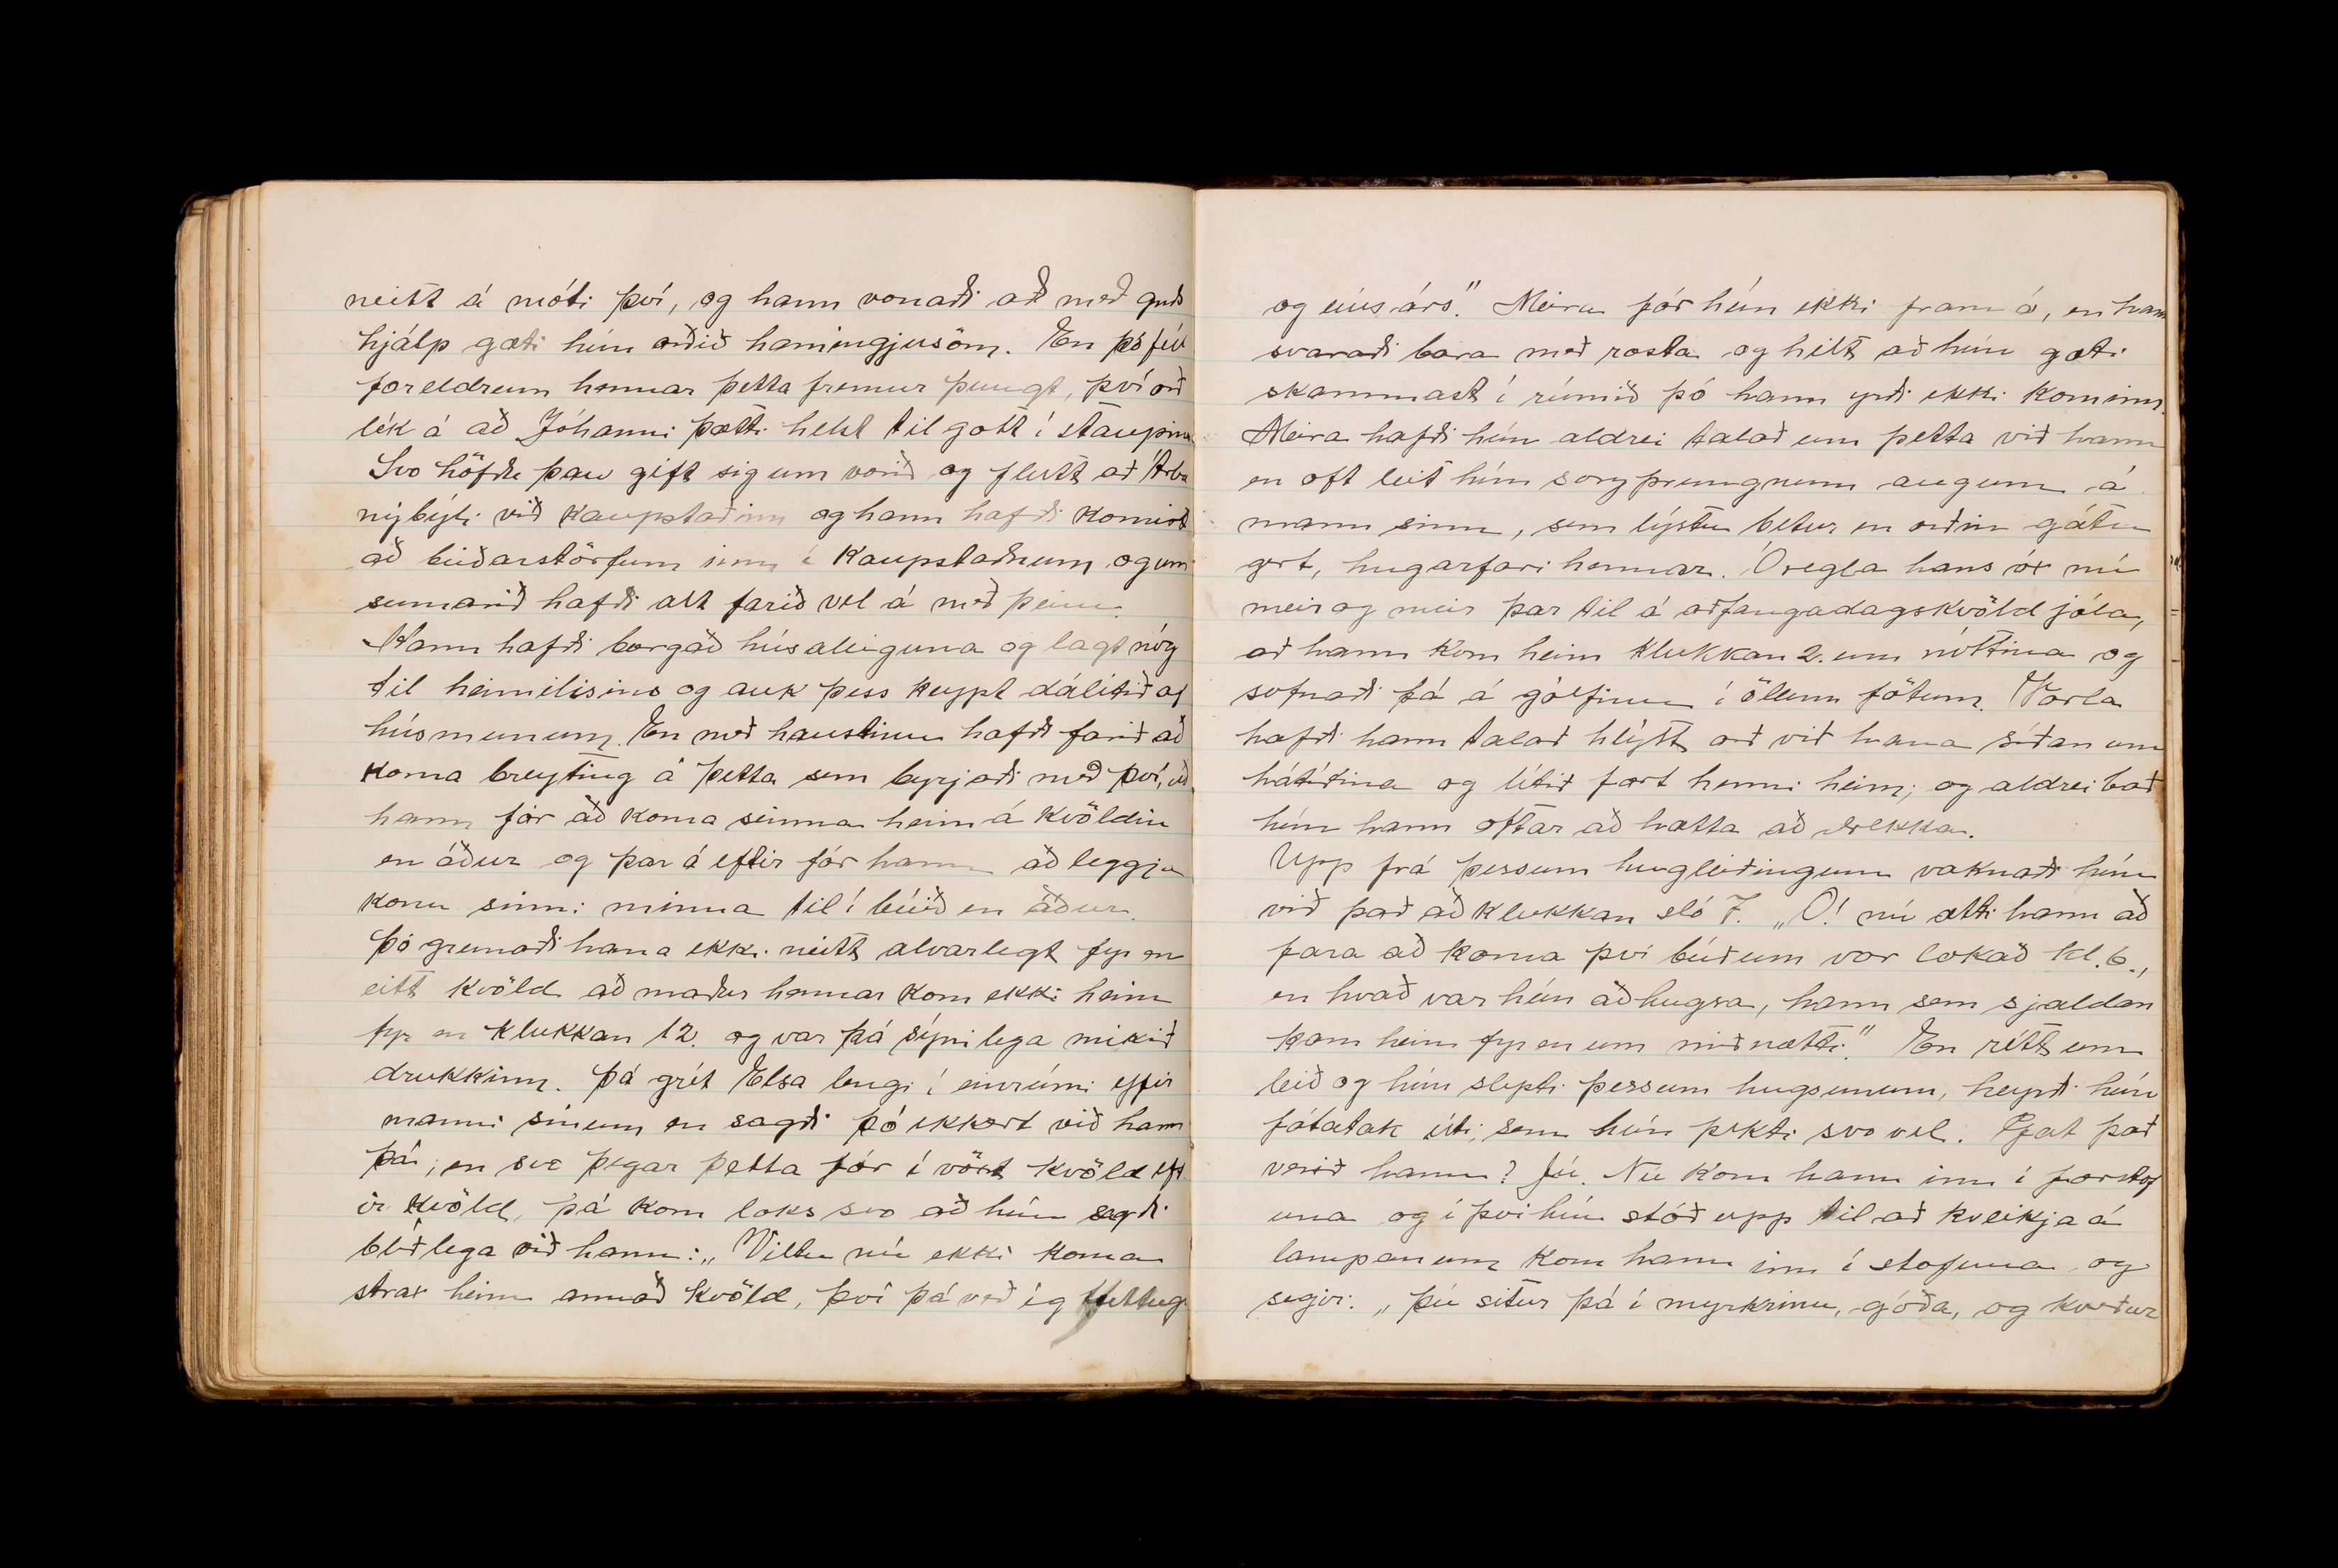 neitt á móti því, og hann vonaði að með guðs
hjálp gæti hún orðið hamingjusöm. En þó féll
foreldrum hennar þetta fremur þungt, því orð
lék á að Jóhanni þætti helst til gott í staupinu
Svo höfðu þau gift sig um vorið og flutt að Árbæ
nýbýli við kaupstaðinn og hann hafði komist
að búðarstörfum inn í kaupstaðnum og um
sumarið hafði alt farið vel á með þeim.
Hann hafði borgað húsaleiguna og lagt nóg
til heimilisins og auk þess keypt dálítið af
húsmunum. En með haustinu hafði farið að
koma breyting á þetta sem byrjaði með því, að
hann fór að koma seinna heim á kvöldin
en áður og þar á eftir fór hann að leggja
konu sinni minna til í búið en áður.
Þó grunaði hana ekki neitt alvarlegt fyr en
eitt kvöld að maður hennar kom ekki heim
fyr en klukkan 12. og var þá sýnilega mikið
drukkinn. Þá grét Elsa lengi í einrúmi yfir
manni sínum en sagði þó ekkert við hann
þá; en svo þegar þetta fór í vöxt kvöld eft
ir kvöld, þá kom loks svo að hún sagði
blíðlega við hann: „Viltu nú ekki koma
strax heim annað kvöld, því þá veð ég tuttug
og eins árs." Meira fór hún ekki fram á, en hann
svaraði bara með rosta og hélt að hún gæti
skammast í rúmið þó hann yrði ekki kominn.
Meira hafði hún aldrei talað um þetta við hann
en oft leit hún sorgþrungnum augum á
mann sinn, sem lýstu betur en orðin gátu
gert, hugarfari hennar. Óregla hans óx nú
meir og meir þar til á aðfangadagskvöld jóla,
að hann kom heim klukkan 2. um nóttina og
sofnaði þá á gólfinu í öllum fötum. Varla
hafði hann talað hlýtt orð við hana síðan um
hátíðina og lítið fært henni heim; og aldrei bað
hún hann oftar að hætta að drekka.
Upp frá þessum hugleiðingum vaknaði hún
við það að klukkan sló 7. „Ó! nú ætti hann að
fara að koma því búðum var lokað kl. 6.,
en hvað var hún að hugsa, hann sem sjaldan
kom heim fyr en um miðnætti." En rétt um
leið og hún slepti þessum hugsunum, heyrði hún
fótatak úti, sem hún þekti svo vel. Gat það
verið hann? Jú. Nú kom hann inn í forstof
una og í því hún stóð upp til að kveikja á
lampanum kom hann inn í stofuna og
segir: „Þú situr þá í myrkrinu, góða, og kveður